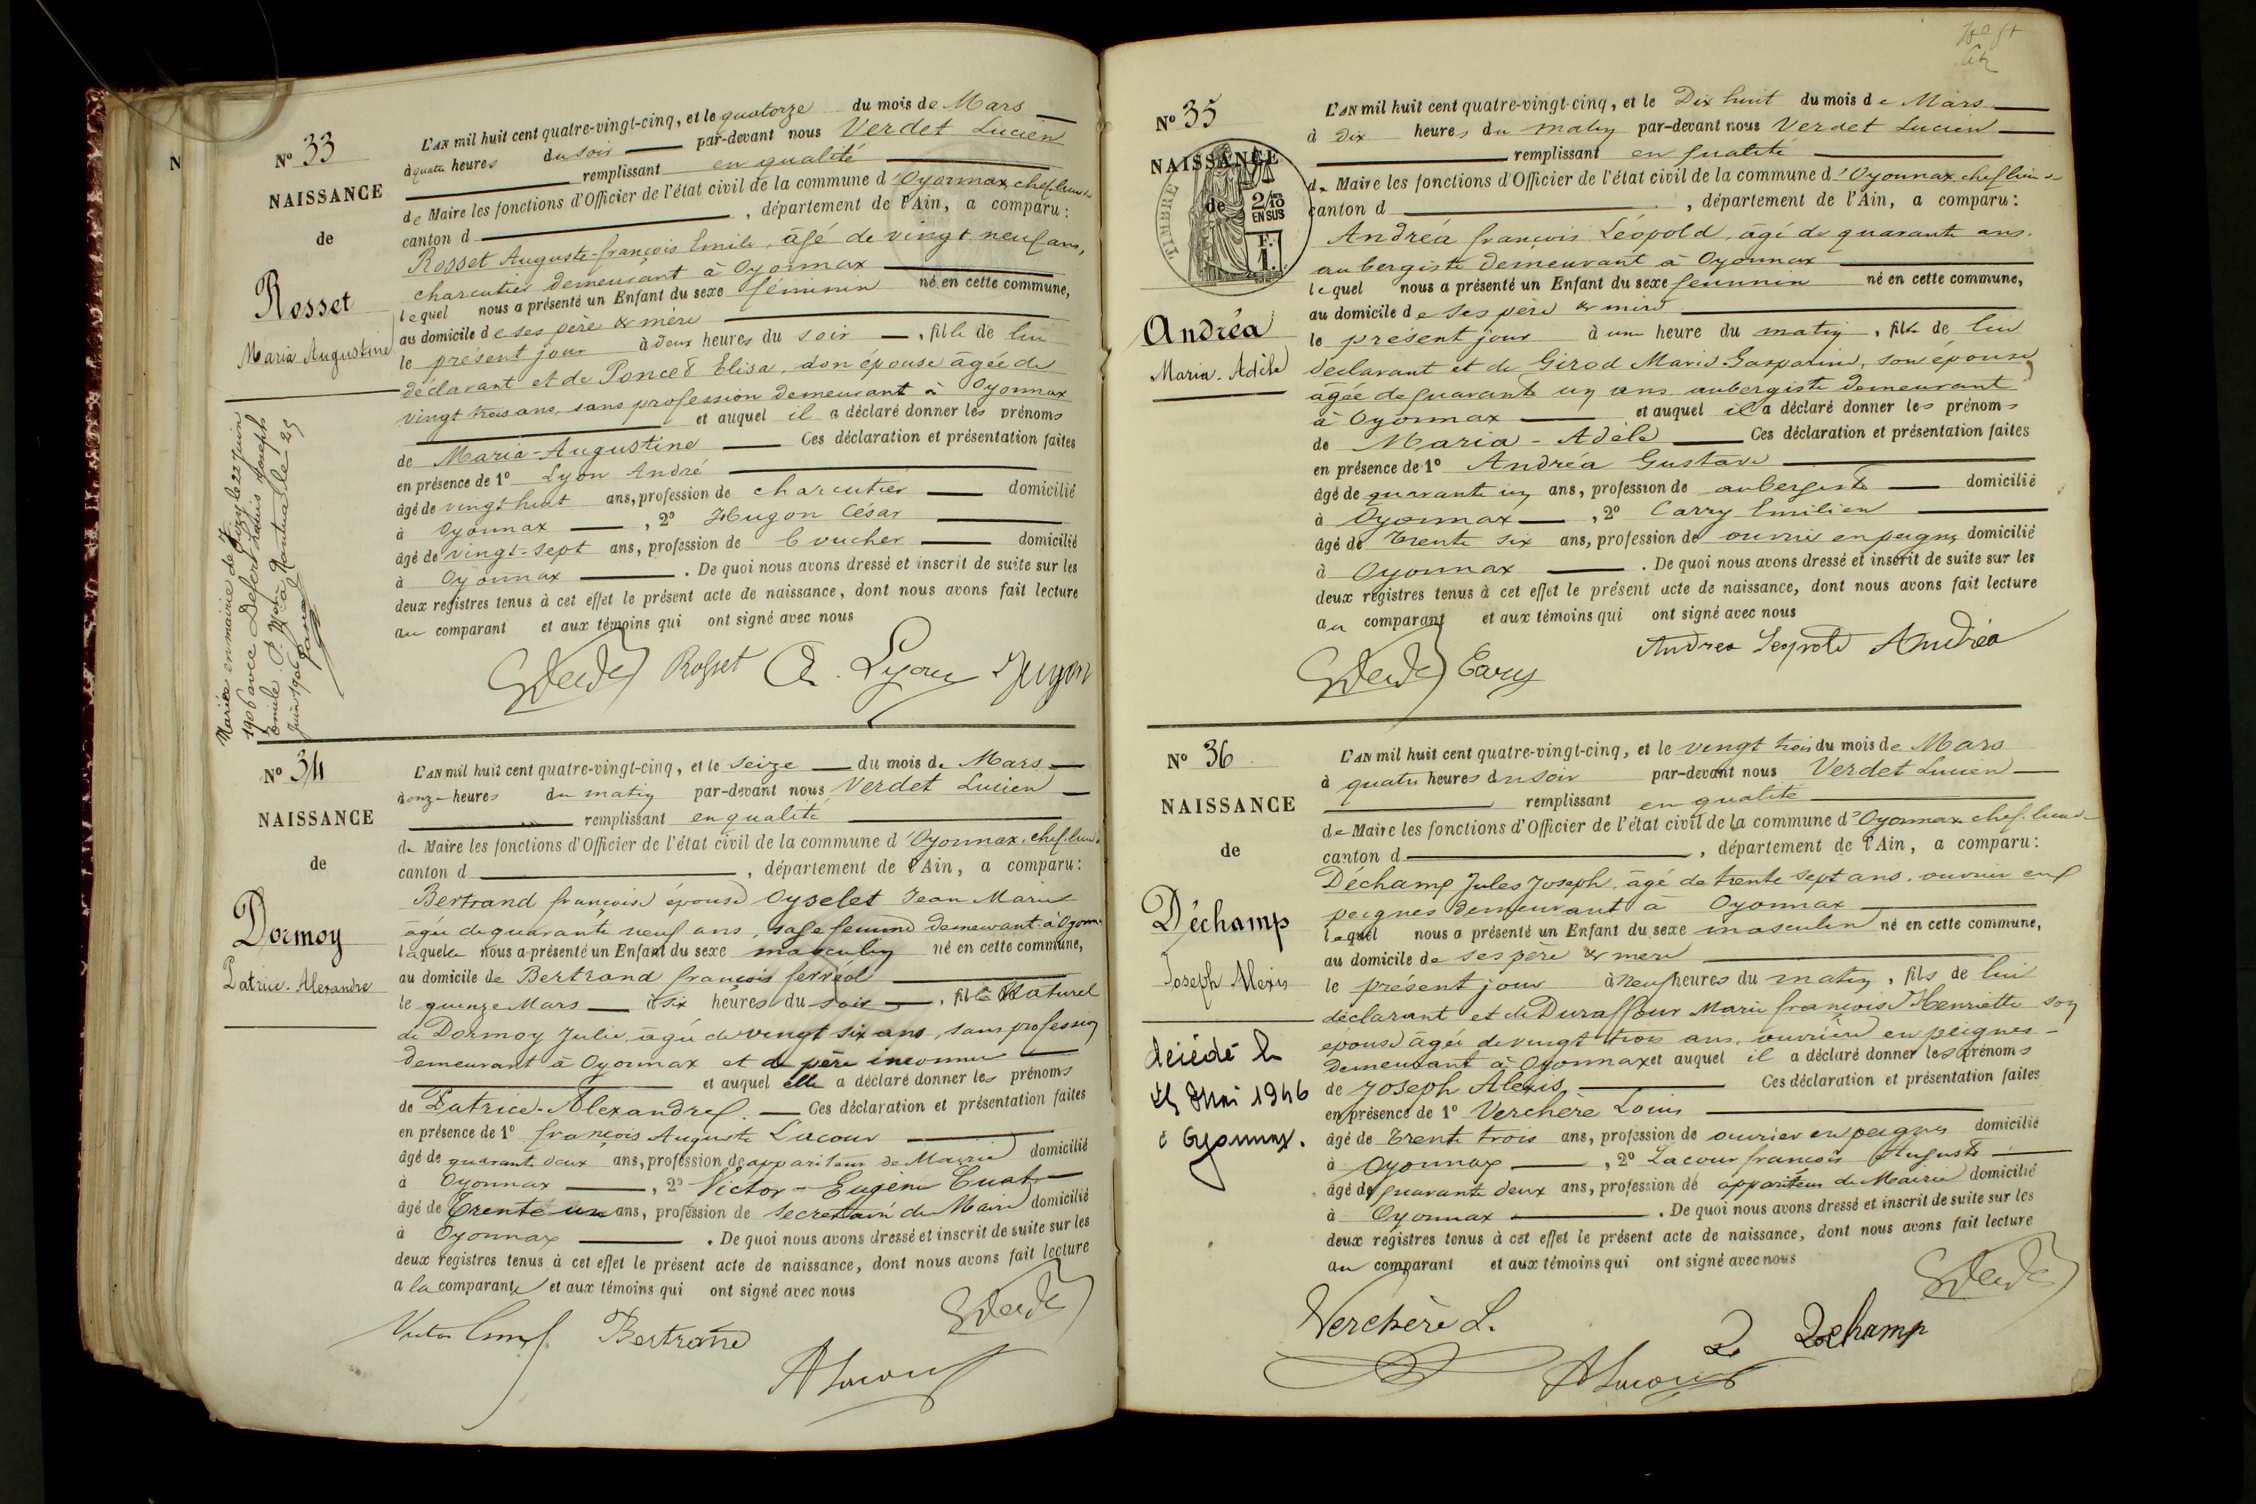 N
Nº 33
NAISSANCE
de
Rosset
Maria Augustine
Mariée en mairie de le 22 Juin
1906 avec Defert Louis Joseph
Emile Nantua le 25
Juin 1906
L'AN mil huit cent quatre-vingt-cinq, et le quatorze du mois de Mars
à quatre heures du soir par-devant nous Verdet Lucien
remplissant en qualité
de Maire les fonctions d'Officier de l'état civil de la commune d'Oyonnax, chef lieu de
canton d , département de l'Ain, a comparu:
Rosset Auguste-françois Emile, âgé de vingt neuf ans,
charcutier demeurant à Oyonnax
lequel nous a présenté un Enfant du sexe féminin né en cette commune,
au domicile de ses père & mère
le présent jour à deux heures du soir , fille de lui
déclarant et de Poncet Elisa, son épouse âgée de
vingt trois ans, sans profession demeurant à Oyonnax
et auquel il a déclaré donner les prénoms
de Maria-Augustine Ces déclaration et présentation faites
en présence de 1º Lyon André
âgé de vingt huit ans, profession de charcutier domicilié
à Oyonnax , 2º Hugon César
âgé de vingt-sept ans, profession de boucher domicilié
à Oyonnax . De quoi nous avons dressé et inscrit de suite sur les
deux registres tenus à cet effet le présent acte de naissance, dont nous avons fait lecture
au comparant et aux témoins qui ont signé avec nous
Verdet Rosset A. Lyon Hugon
Nº 34
NAISSANCE
de
Dormoy
Patrice-Alexandre
L'AN mil huit cent quatre-vingt-cinq, et le seize du mois de Mars
à onze heures du matin par-devant nous Verdet Lucien
remplissant en qualité
de Maire les fonctions d'Officier de l'état civil de la commune d'Oyonnax, chef lieu de
canton d , département de l'Ain, a comparu:
Bertrand françoise épouse Oyselet Jean Marie
âgée de quarante neuf ans, sage femme demeurant à Oyonnax
laquelle nous a présenté un Enfant du sexe masculin né en cette commune,
au domicile de Bertrand françois ferréol
le quinze Mars à six heures du soir , fils Naturel
de Dormoy Julie, âgée de vingt six ans, sans profession
demeurant à Oyonnax et de père inconnu
et auquel elle a déclaré donner les prénoms
de Patrice-Alexandre. Ces déclaration et présentation faites
en présence de 1º françois Auguste Lacour
âgé de quarante deux ans, profession de appariteur de Mairie domicilié
à Oyonnax , 2º Victor-Eugène Cuat
âgé de Trente un ans, profession de secrétaire de Mairie domicilié
à Oyonnax . De quoi nous avons dressé et inscrit de suite sur les
deux registres tenus à cet effet le présent acte de naissance, dont nous avons fait lecture
a la comparante et aux témoins qui ont signé avec nous
Bertrand Verdet
ALacour
Nº 35
NAISSANCE
de
TIMBRE
2/10
EN SUS
F.
1.
Andréa
Maria-Adèle
L'AN mil huit cent quatre-vingt-cinq, et le Dix huit du mois de Mars
à dix heures du matin par-devant nous Verdet Lucien
remplissant en qualité
de Maire les fonctions d'Officier de l'état civil de la commune d'Oyonnax chef lieu de
canton d , département de l'Ain, a comparu:
Andréa françois Léopold, âgé de quarante ans.
aubergiste demeurant à Oyonnax
lequel nous a présenté un Enfant du sexe féminin né en cette commune,
au domicile de ses père & mère
le présent jour à une heure du matin , fille de lui
déclarant et de Girod Marie Gasparine, son épouse
âgée de quarante un ans aubergiste demeurant
à Oyonnax et auquel il a déclaré donner les prénoms
de Maria-Adèle Ces déclaration et présentation faites
en présence de 1º Andréa Gustave
âgé de quarante un ans, profession de aubergiste domicilié
à Oyonnax , 2º Carry Emilien
âgé de Trente six ans, profession de ouvrier en peignes domicilié
à Oyonnax . De quoi nous avons dressé et inscrit de suite sur les
deux registres tenus à cet effet le présent acte de naissance, dont nous avons fait lecture
au comparant et aux témoins qui ont signé avec nous
Verdet Cary Andrea Leopold Andréa
Nº 36
NAISSANCE
de
Déchamp
Joseph Alexis
décédé le
25 Mai 1946
à Oyonnax.
L'AN mil huit cent quatre-vingt-cinq, et le vingt trois du mois de Mars
à quatre heures du soir par-devant nous Verdet Lucien
remplissant en qualité
de Maire les fonctions d'Officier de l'état civil de la commune d'Oyonnax chef-lieu de
canton d , département de l'Ain, a comparu:
Déchamp Jules Joseph, âgé de trente sept ans, ouvrier en
peignes demeurant à Oyonnax
lequel nous a présenté un Enfant du sexe masculin né en cette commune,
au domicile de ses père & mère
le présent jour à neuf heures du matin , fils de lui
déclarant et de Duraffour Marie françoise Henriette son
épouse âgée de vingt trois ans, ouvrière en peignes
demeurant à Oyonnax et auquel il a déclaré donner les prénoms
de Joseph Alexis, Ces déclaration et présentation faites
en présence de 1º Verchère Louis
âgé de Trente trois ans, profession de ouvrier en peignes domicilié
à Oyonnax , 2º Lacour françois Auguste
âgé de quarante deux ans, profession de appariteur de Mairie domicilié
à Oyonnax . De quoi nous avons dressé et inscrit de suite sur les
deux registres tenus à cet effet le présent acte de naissance, dont nous avons fait lecture
au comparant et aux témoins qui ont signé avec nous
Verdet
Verchère L. Dechamp
ALacour